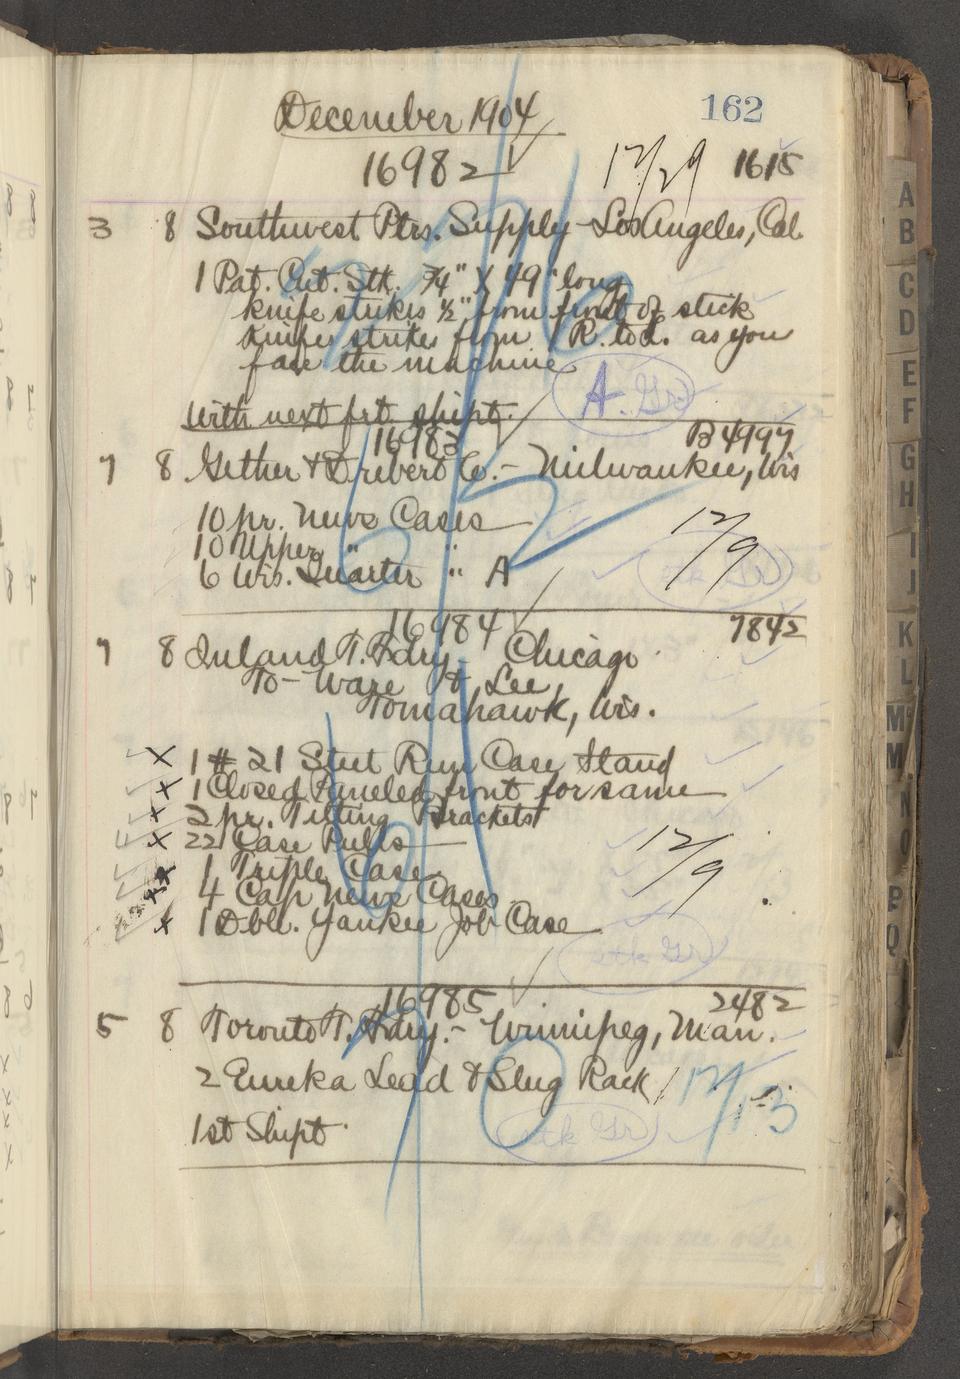 December 1904
162
16982
12/29
1615
3 8 Southwest Ptrs. Supply - Los Angeles, Cal.
1 Pat. Cut. Stk. ¾" X 49" long
knife strikes ½" from front of stick
Knife strikes from R. to L. as you
face the machine
A. Gr
With next frt shipt.
16983
B4997
7 8 Gether & Drebert Co. - Milwaukee, Wis
10 pr. News Cases
10 Upper "
6 Wis. Quarter " A
12/9
stk Gr
16984
7842
7 8 Inland T. Fdry - Chicago
To - Ware & Lee,
Tomahawk, Wis.
x 1 # 21 Steel Run Case Stand
x 1 Closed Paneled front for same
x x 2 pr. Tilting Brackets
x 22 Case Pulls
x 1 Triple Case
x x 4 Cap News Cases
x 1 Dbl. Yankee Job Case
12/9
stk Gr
16985
2482
5 8 Toronto T. Fdry. - Winnipeg, Man.
2 Eureka Lead & Slug Rack
12/13
1st Shipt.
stk Gr
A
B
C
D
E
F
G
H
I
J
K
L
M
Mc
N
O
P
Q